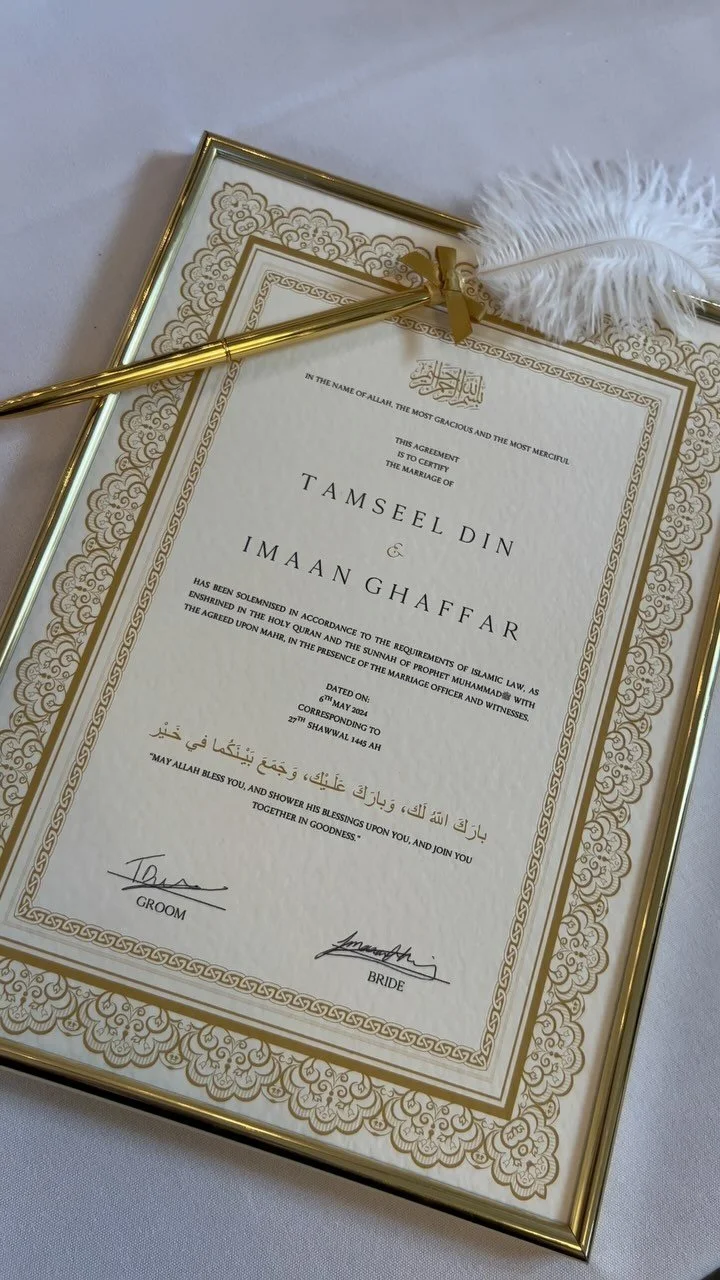 بسم الله الرحمن الرحيم
IN THE NAME OF ALLAH, THE MOST GRACIOUS AND THE MOST MERCIFUL
THIS AGREEMENT
IS TO CERTIFY
THE MARRIAGE OF
TAMSEEL DIN
&
IMAAN GHAFFAR
HAS BEEN SOLEMNISED IN ACCORDANCE TO THE REQUIREMENTS OF ISLAMIC LAW, AS
ENSHRINED IN THE HOLY QURAN AND THE SUNNAH OF PROPHET MUHAMMADﷺ WITH
THE AGREED UPON MAHR, IN THE PRESENCE OF THE MARRIAGE OFFICER AND WITNESSES.
DATED ON:
6TH MAY 2024
CORRESPONDING TO
27TH SHAWWAL 1445 AH
بارَكَ اللهُ لَك، وَبارَكَ عَلَـيْك، وَجَمَعَ بَيْنَكُما في خَـيْر
"MAY ALLAH BLESS YOU, AND SHOWER HIS BLESSINGS UPON YOU, AND JOIN YOU
TOGETHER IN GOODNESS."
GROOM
BRIDE